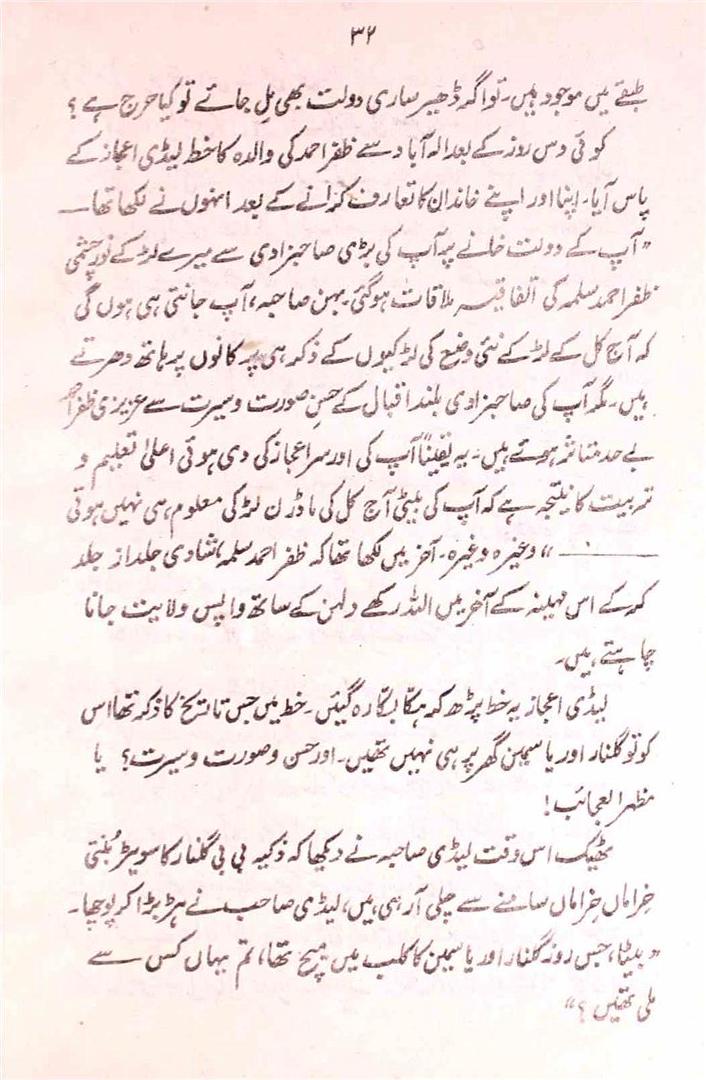 ۳۲
طبقے میں موجود ہیں۔ تو اگر ڈھیر ساری دولت بھی مِل جائے تو کیا حرج ہے ؟
کوئی دس روز کے بعد الہ آباد سے ظفر احمد کی والدہ کا خط لیڈی اعجاز کے
پاس آیا۔ اپنا اور اپنے خاندان کا تعارف کرانے کے بعد انہوں نے لکھا تھا —
”آپ کے دولت خانے پہ آپ کی بڑی صاحبزادی سے میرے لڑکے نورِ چشمی
ظفر احمد سلمہ کی اتفاقیہ ملاقات ہوگئی۔ بہن صاحبہ، آپ جانتی ہی ہوں گی
کہ آج کل کے لڑکے نئی وضع کی لڑکیوں کے ذکر ہی پہ کانوں پر ہاتھ دھرتے
ہیں۔ مگر آپ کی صاحبزادی بلند اقبال کے حسنِ صورت و سیرت سے عزیزی ظفر احمد
بے حد متاثر ہوئے ہیں۔ یہ یقیناً آپ کی اور سر اعجاز کی دی ہوئی اعلیٰ تعلیم و
تربیت کا نتیجہ ہے کہ آپ کی بیٹی آج کل کی ماڈرن لڑکی معلوم ہی نہیں ہوتی
——— “ وغیرہ وغیرہ۔ آخر میں لکھا تھا کہ ظفر احمد سلمہ، شادی جلد از جلد
کر کے اس مہینہ کے آخر میں اللہ رکھے دلہن کے ساتھ واپس ولایت جانا
چاہتے ہیں۔
لیڈی اعجاز یہ خط پڑھ کر ہکّا بکّا رہ گئیں۔ خط میں جس تاریخ کا ذکر تھا اس
کو تو گلنار اور یاسمین گھر پر ہی نہیں تھیں۔ اور حسن و صورت و سیرت؟ یا
مظہر العجائب!
ٹھیک اس وقت لیڈی صاحبہ نے دیکھا کہ ذکیہ بی بی گلنار کا سویٹر بُنتی
خراماں خراماں سامنے سے چلی آ رہی ہیں، لیڈی صاحب نے ہڑبڑا کر پوچھا۔
”بیٹا، جس روز گلنار اور یاسمین کا کلب میں میچ تھا، تم یہاں کس سے
ملی تھیں ؟“